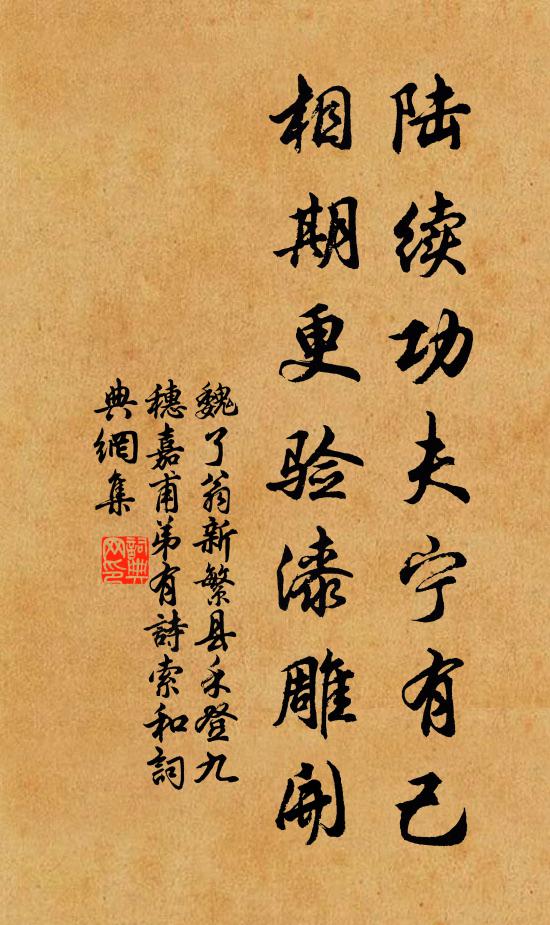 陆续功夫宁有已
相期更验漆雕开
魏了翁新繁县禾登九
穗嘉甫弟有詩索和詞
典網集
詞典
网印